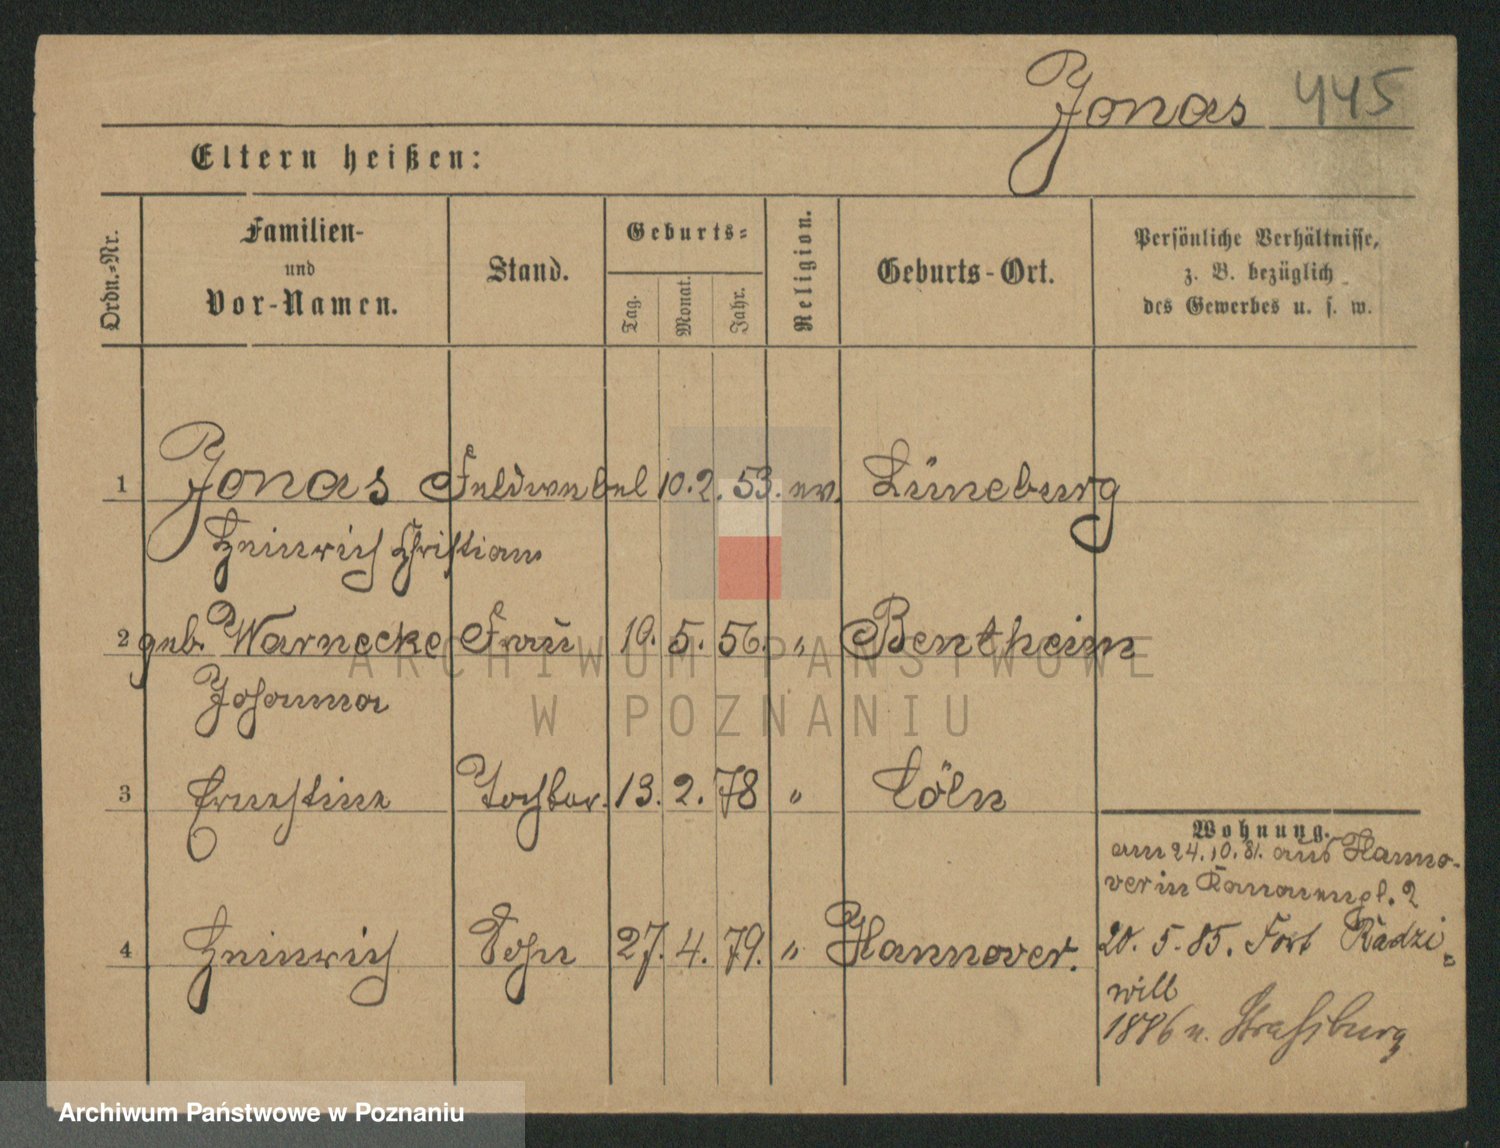 Jonas 445
Eltern heißen:
Ordn.-Nr.
Familien-
und
Vor-Namen.
Stand.
Geburts-
Tag.
Monat.
Jahr.
Religion.
Geburts-Ort.
Persönliche Verhältnisse,
z. B. bezüglich
des Gewerbes u. s. w.
1 Jonas Feldwebel 10. 2. 53. ev. Lüneburg
Heinrich Christian
2 geb. Warnecke Frau 19. 5. 56. " Bentheim
Johanna
3 Ernestine Tochter. 13. 2. 78 " Cöln
4 Heinrich Sohn 27. 4. 79. " Hannover.
Wohnung.
am 24.10.81. aus Hanno-
ver in Kanonenpl. 2
20. 5. 85. Fort Radzi-
will
1886 n. Straßburg
ARCHIWUM PAŃSTWOWE
W POZNANIU
Archiwum Państwowe w Poznaniu